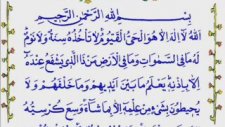 بِسْمِ اللهِ الرَّحْمٰنِ الرَّحِيْمِ
اَللهُ لَآ اِلٰهَ اِلَّا هُوَ الْحَيُّ الْقَيُّوْمُ لَا تَاْخُذُهٗ سِنَةٌ وَّلَا نَوْمٌ
لَهٗ مَا فِي السَّمٰوٰتِ وَمَا فِي الْاَرْضِ مَنْ ذَا الَّذِيْ يَشْفَعُ عِنْدَهٗٓ
اِلَّا بِاِذْنِهٖ يَعْلَمُ مَا بَيْنَ اَيْدِيْهِمْ وَمَا خَلْفَهُمْ وَلَا
يُحِيْطُوْنَ بِشَيْءٍ مِّنْ عِلْمِهٖٓ اِلَّا بِمَا شَآءَ وَسِعَ كُرْسِيُّهُ